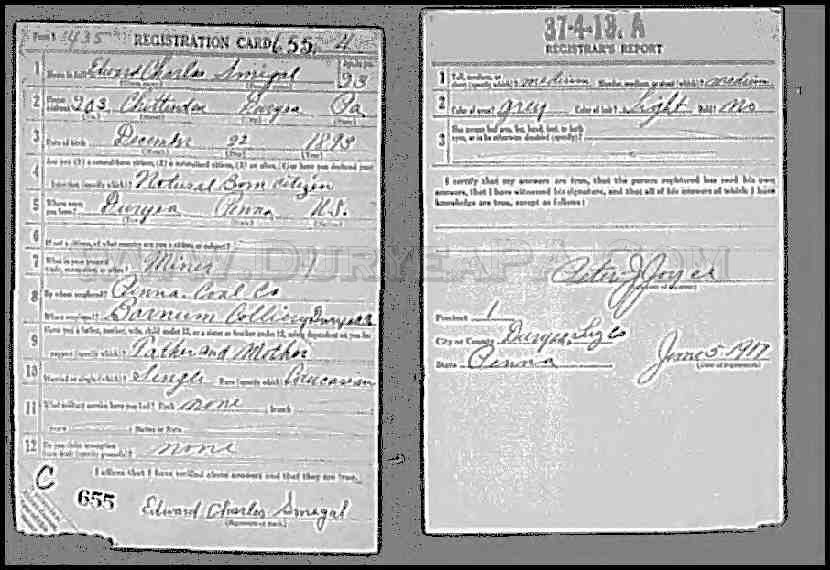 Form 1 1435 REGISTRATION CARD 655. 4
1 Name in full Edward Charles Smegal 23
2 Home address 203 Chittenden Duryea Pa
3 Date of birth December 22 1893
4 Are you (1) a natural-born citizen, (2) a naturalized citizen, (3) an alien, (4) or have you declared your
intention (specify which)? Natural Born Citizen
5 Where were you born? Duryea Penna U.S.
6 If not a citizen, of what country are you a citizen or subject?
7 What is your present trade, occupation, or office? Miner
8 By whom employed? Penna. Coal Co
Where employed? Barnum Colliery Duryea
9 Have you a father, mother, wife, child under 12, or a sister or brother under 12, solely dependent on you for
support (specify which)? Father and Mother
10 Married or single (which)? Single Race (specify which)? Caucasian
11 What military service have you had? Rank none branch
years Nation or State
12 Do you claim exemption from draft (specify grounds)? none
I affirm that I have verified above answers and that they are true.
C
655
Edward Charles Smegal
(Signature or mark)
37-4-13. A
REGISTRAR'S REPORT
1 Tall, medium, or short (specify which)? medium Slender, medium, or stout (which)? medium
2 Color of eyes? Grey Color of hair? Light Bald? No
3 Has person lost arm, leg, hand, foot, or both eyes, or is he otherwise disabled (specify)?
I certify that my answers are true, that the person registered has read his own
answers, that I have witnessed his signature, and that all of his answers of which I have
knowledge are true, except as follows:
Peter J Joyce
(Signature of registrar)
Precinct 1
City or County Duryea, Luz Co
State Penna
June 5-1917
(Date of registration)
WWW.DURYEAPA.COM